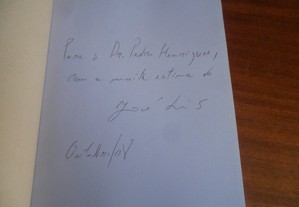 Para o Dr. Pedro Henriques,
com a muita estima do
José Luís
Outubro/98